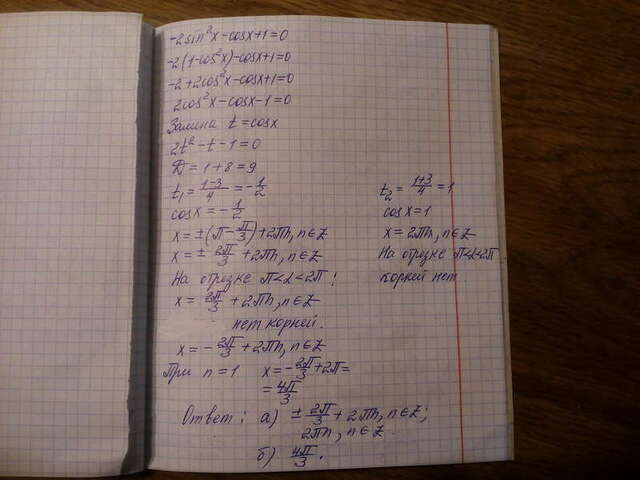 -2sin²x-cosx+1=0
-2(1-cos²x)-cosx+1=0
-2+2cos²x-cosx+1=0
2cos²x-cosx-1=0
Замена t=cosx
2t²-t-1=0
D=1+8=9
t₁=(1-3)/4=-1/2
cosx=-1/2
x=±(π-π/3)+2πn, n∈Z
x=±2π/3+2πn, n∈Z
На отрезке π<2<2π!
x=2π/3+2πn, n∈Z
нет корней.
x=-2π/3+2πn, n∈Z
При n=1 x=-2π/3+2π=
=4π/3
t₂=(1+3)/4=1
cosx=1
x=2πn, n∈Z
На отрезке π<2<2π
корней нет.
Ответ: а) ±2π/3+2πn, n∈Z;
2πn, n∈Z
б) 4π/3.